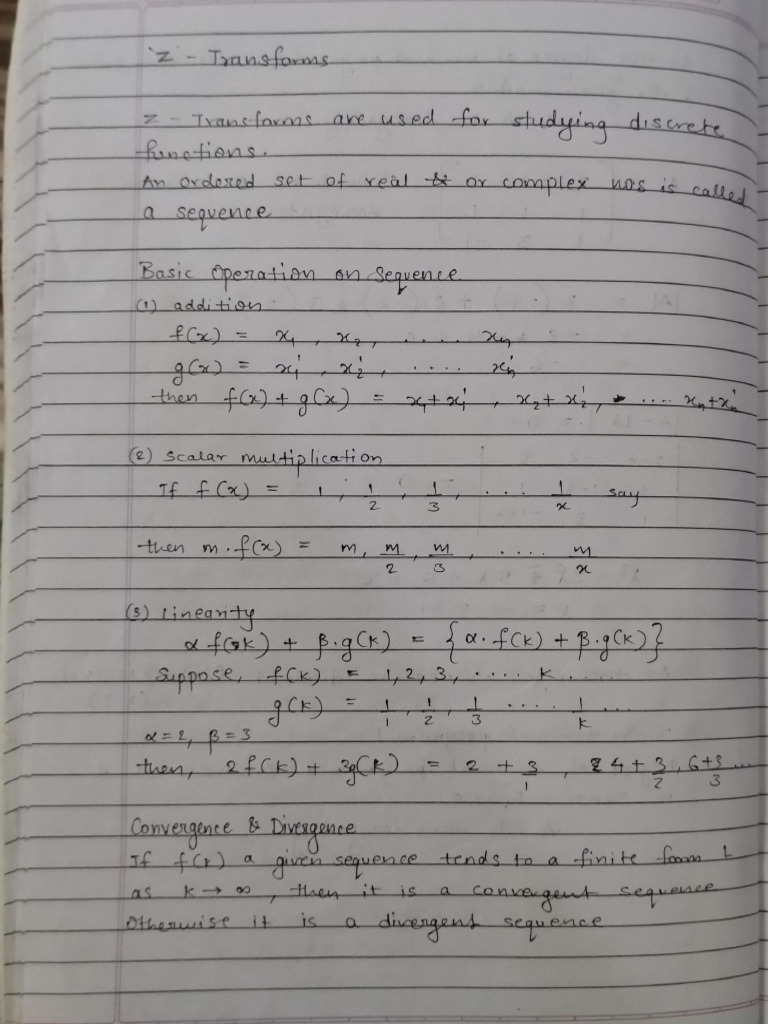 'Z - Transforms
Z - Transforms are used for studying discrete
functions.
An ordered set of real or complex nos is called
a sequence
Basic operation on sequence
(1) addition
f(x) = x₁ , x₂ , .... xₙ
g(x) = x₁' , x₂' , .... xₙ'
then f(x) + g(x) = x₁+x₁' , x₂+x₂' , .... xₙ+xₙ'
(2) scalar multiplication
If f(x) = 1 , 1/2 , 1/3 , ... 1/x say
then m·f(x) = m, m/2 , m/3 , .... m/x
(3) linearity
α f(k) + β·g(k) = {α·f(k) + β·g(k)}
Suppose, f(k) = 1, 2, 3, .... k ...
g(k) = 1/1 , 1/2 , 1/3 .... 1/k ...
α=2, β=3
then, 2f(k) + 3g(k) = 2 + 3/1 , 4 + 3/2 , 6+3/3 ...
Convergence & Divergence
If f(k) a given sequence tends to a finite form l
as k → ∞ , then it is a convergent sequence
otherwise it is a divergent sequence